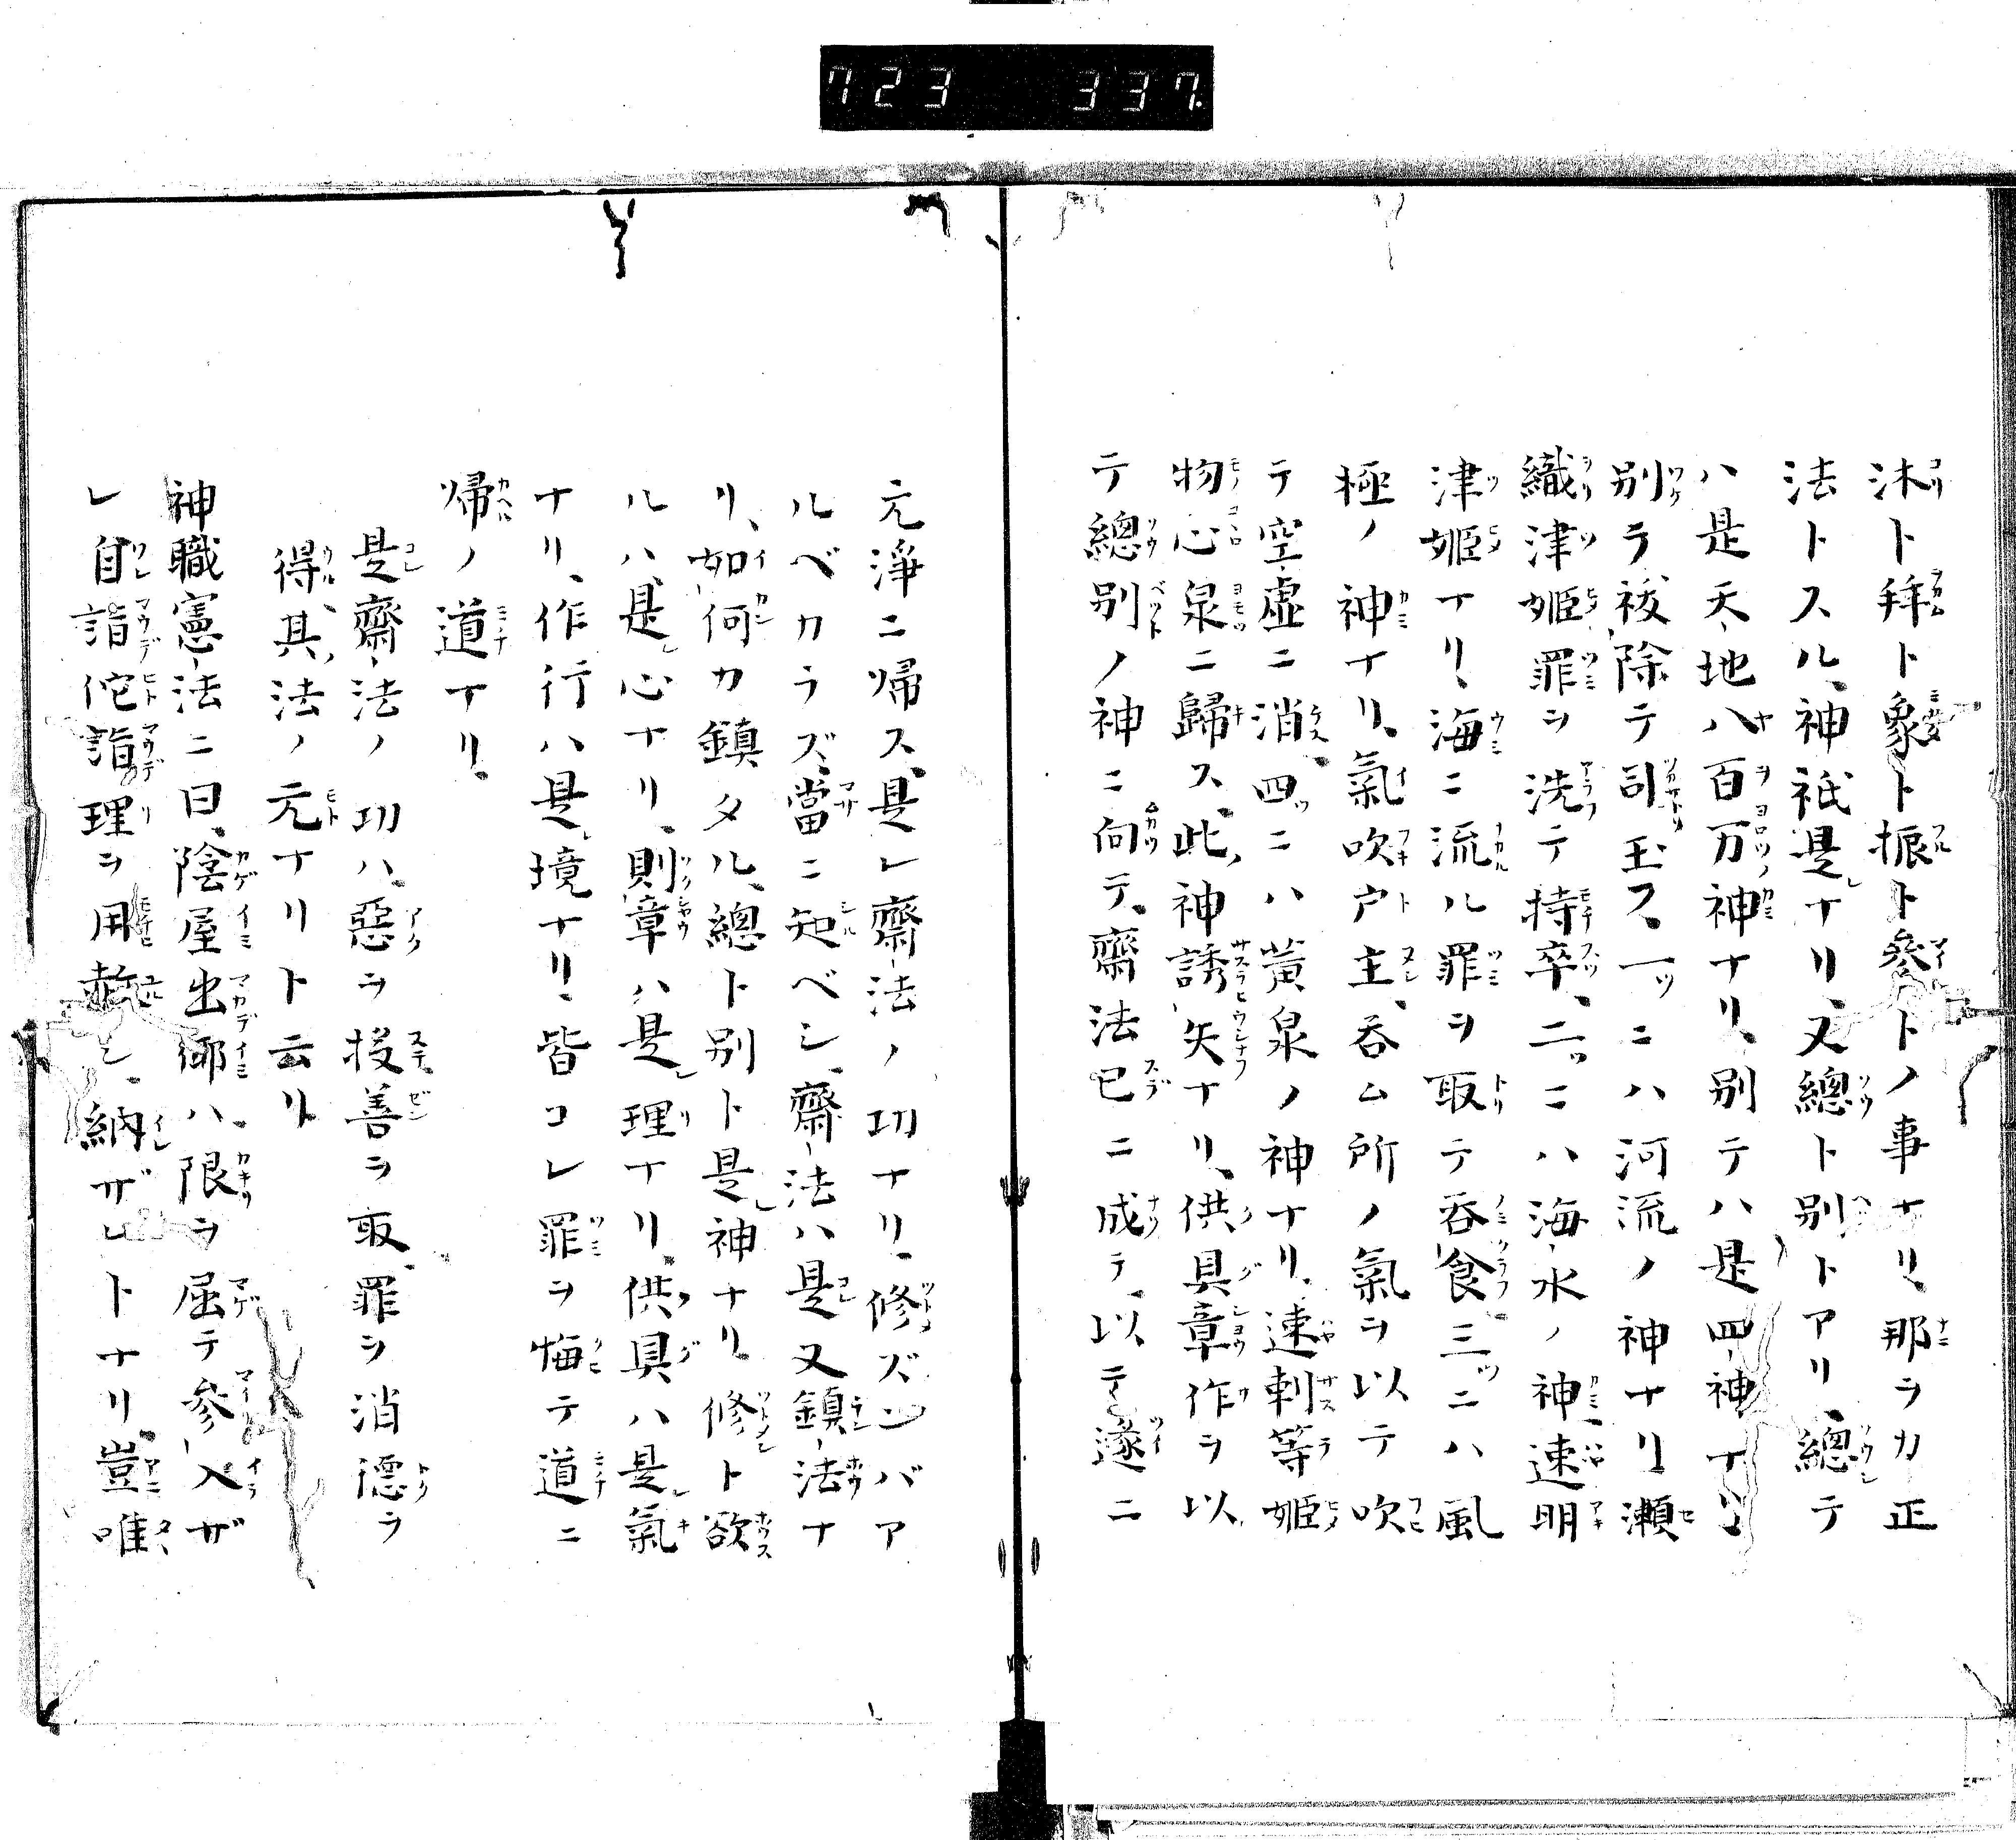 723 337.
沐ト拜ト象ト振ト參トノ事ナリ、那ヲカ正
法トスル、神祇是ナリ、又總ト別トアリ、總テ
ハ是天地八百万神ナリ、別テハ是四神ナリ
別テ祓除テ司玉フ、一ツニハ河流ノ神ナリ瀬
織津姫罪ヲ洗テ持卒、二ツニハ海水ノ神速明
津姫ナリ、海ニ流ル罪ヲ取テ呑食三ツニハ風
極ノ神ナリ、氣吹戸主、呑ム所ノ氣ヲ以テ吹
テ空虚ニ消、四ツニハ黄泉ノ神ナリ、速刺等姫
物心泉ニ歸ス、此神誘失ナリ、供具章作ヲ以
テ總別ノ神ニ向テ、齋法已ニ成テ、以テ遂ニ
元淨ニ帰ス、是レ齋法ノ功ナリ、修ズンバア
ルベカラズ、當ニ知ベシ、齋法ハ是又鎮法ナ
リ、如何カ鎮タル、總ト別ト是神ナリ、修ト欲
ルハ、是心ナリ、則章ハ是理ナリ、供具ハ是氣
ナリ、作行ハ是境ナリ、皆コレ罪ヲ悔テ道ニ
帰ノ道ナリ、
是齋法ノ功ハ、惡ヲ投善ヲ取、罪ヲ消德ヲ
得、其法ノ元ナリト云リ
神職憲法ニ曰、陰屋出鄉ハ、限ヲ屈テ參入ザ
レ自詣佗詣理ヲ用赦シ、納ザレトナリ、豈唯